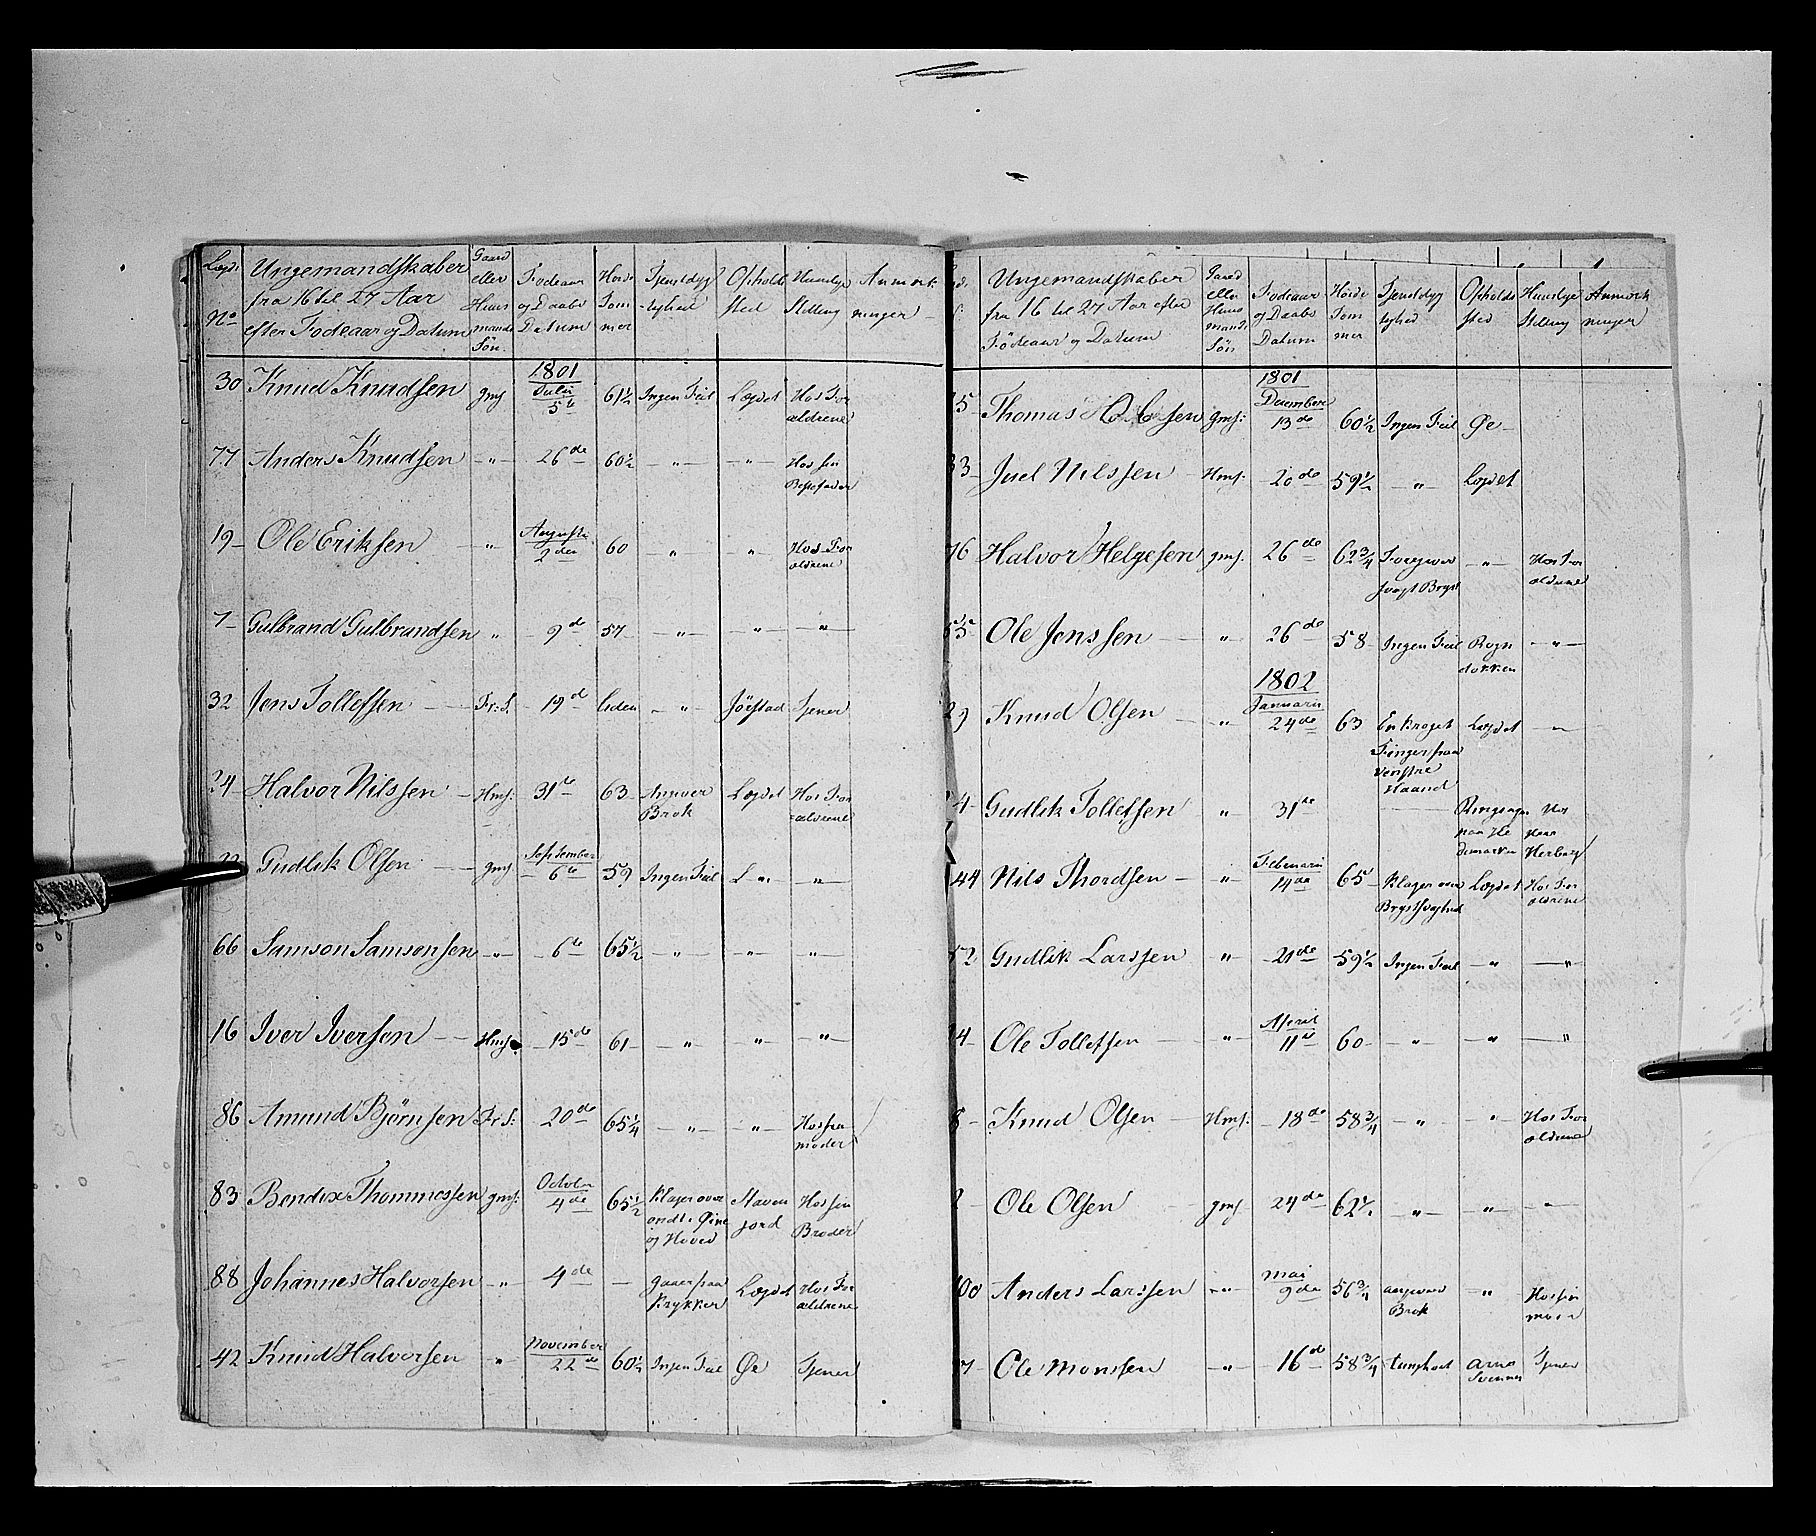 Lægd: No
Ungemandskaber
fra 16 til 27 Aar
efter Fødeaar og Datum
Gaard eller Huus mands Søn.
Fødeaar og Daabs Datum
Høide Tom mer
Tjenstdyg tighed
Opholds sted
Huuslige Stilling
Anmærk ninger
1801
30 Knud Knudsen gmS Julii 5te 61½ Ingen Feil Lægdet Hos For ældrene
77 Anders Knudsen -"- 26de 60½ -"- -"- Hos sin Bestefader
19 Ole Eriksen -"- Augusti 2den 60 -"- " Hos For ældrene
7 Gulbrand Gulbrandsen " 9de 57 -"- -"- -"-
32 Jens Tollefsen Fr: S. 19d liden -"- Jørstad Tjener
34 Halvor Nilssen HmS: 31te 63 Angiver Brok Lægdet Hos For ældrene
Gudlik Olsen gmS September 6te 59 Ingen Feil L " -"-
66 Samson Samsonsen -"- 6te 65½ -"- -"- -"-
16 Iver Iversen HmS 15de 61 -"- " -"-
86 Amund Bjørnsen Fr S: 20de 65¼ -"- " Hos sin moder
83 Bendix Thommessen gmS: October 4de 65½ klager over ondt i Øine og Hoved Staven jord Hos sin Broder
88 Johannes Halvorsen -"- 4de — gaaer paa Krykker Lægdet Hos For ældrene
42 Knud Halvorsen " November 22de 60½ Ingen Feil Øe Tjener
Ungemandskaber
fra 16 til 27 Aar efter
Fødeaar og Datum
Gaard eller Huus mands Søn
Fødeaar og Daabs Datum
Høide Tom mer
Tjenstdyg tighed
Opholds sted
Huuslige Stilling
Anmærk ninger
1801
15 Thomas gmS: December 13de 60½ Ingen Feil Øe
33 Juel Nilssen HmS: 20de 59½ -"- Lægdet
76 Halvor Helgesen gmS: 26de 62¾ Foregiver svagt Bryst -"- Hos For ældrene
55 Ole Jenssen -"- 26de 58 Ingen Feil Rogn dokken -"-
1802
29 Knud Olsen -"- Januarii 24de 63 En kroget Finger paa venstre Haand Lægdet -"-
4 Gudlik Tollefsen " 31te Ringsager paa He demarken
44 Nils Thordsen -"- Februarii 14de 65 klager over Brystsvaghed Lægdet Hos For ældrene
52 Gudlik Larssen " 21de 59½ Ingen Feil -"- -"-
4 Ole Tollefsen -"- April 11te 60 -"- " "
8 Knud Olsen HmS: 18de 58¾ -"- " Hos For ældrene
2 Ole Olsen gmS 24de 62½ -"- " -"-
100 Anders Larssen -"- Mai 9de 56¾ angiver Brok " Hos sin moer
7 Ole Monssen -"- 16de 58¾ tunghørt Tjener